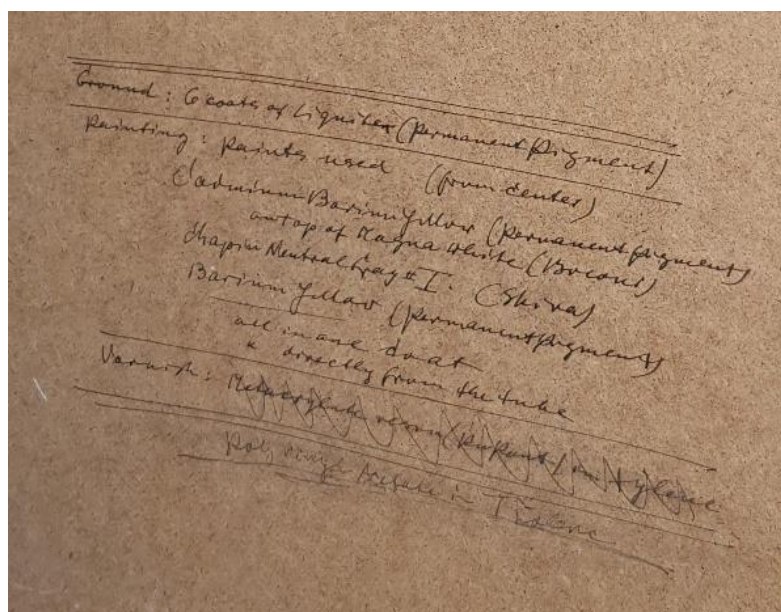 Ground: 6 coats of Liquitex (Permanent Pigment)
Painting: paints used (from center)
Cadmium Barium Yellow (Permanent Pigment)
on top of Magna White (Bocour)
Shapin Neutral Gray # I. (Shiva)
Barium Yellow (Permanent Pigments)
all in one coat
directly from the tube
Varnish: Metacrylate resin (DuPont) in Xylene
Poly vinyl Acetate in Toluene